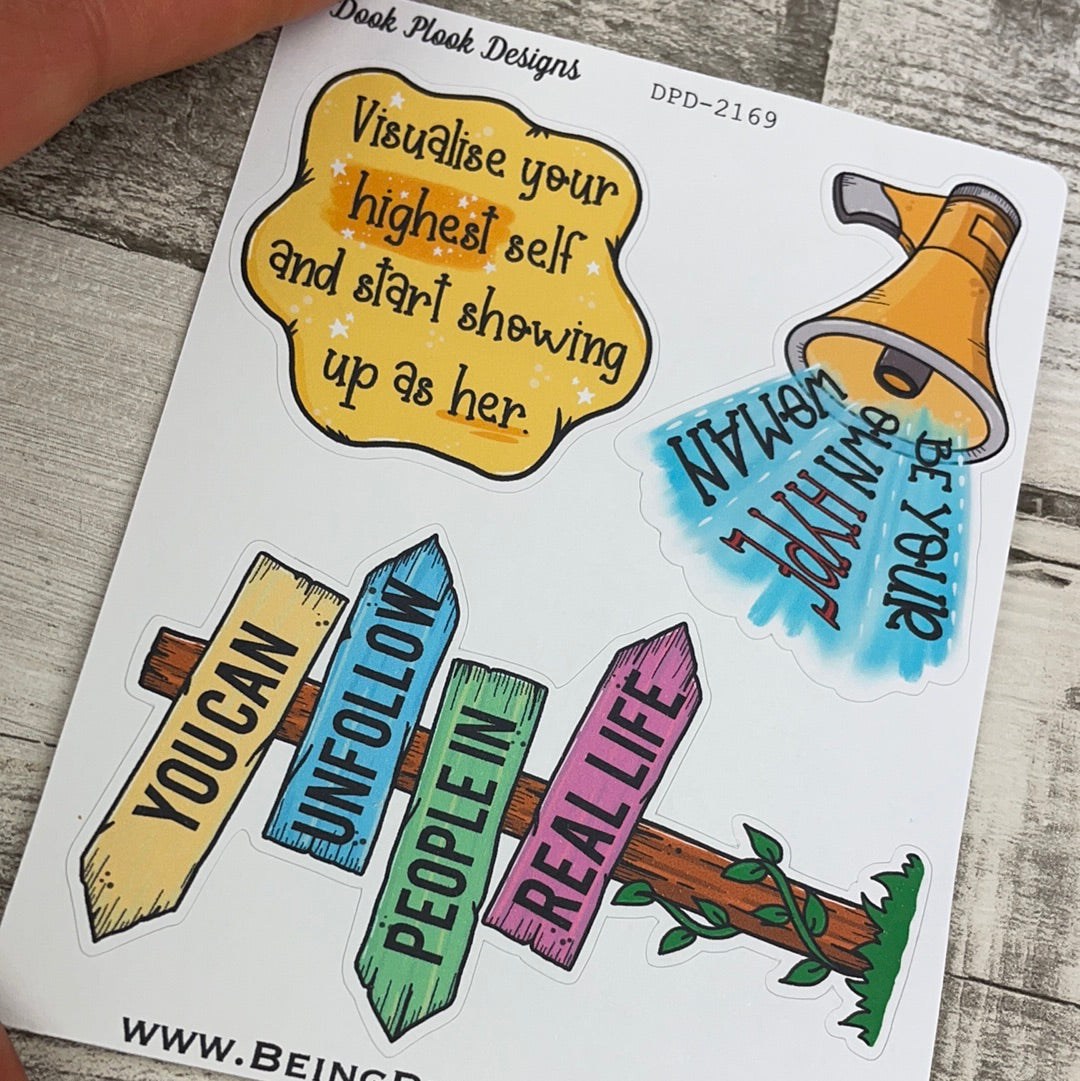 Dook Plook Designs
DPD-2169
Visualise your
highest self
and start showing
up as her.
BE YOUR
OWN HYPE
WOMAN
YOU CAN
UNFOLLOW
PEOPLE IN
REAL LIFE